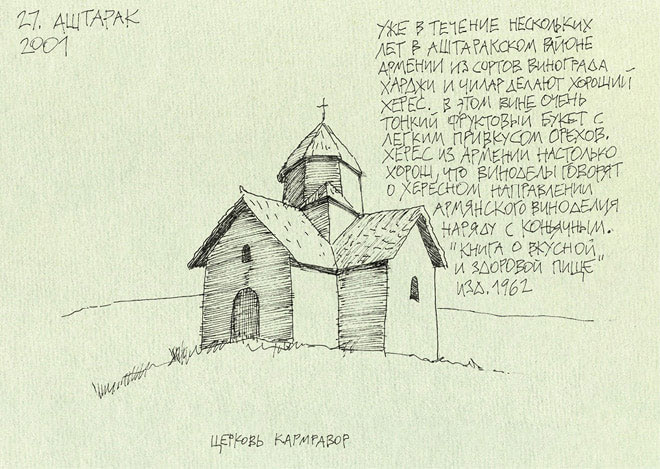 27. АШТАРАК
2001
УЖЕ В ТЕЧЕНИЕ НЕСКОЛЬКИХ
ЛЕТ В АШТАРАКСКОМ РАЙОНЕ
АРМЕНИИ ИЗ СОРТОВ ВИНОГРАДА
ХАРДЖИ И ЧИЛАР ДЕЛАЮТ ХОРОШИЙ
ХЕРЕС. В ЭТОМ ВИНЕ ОЧЕНЬ
ТОНКИЙ ФРУКТОВЫЙ БУКЕТ С
ЛЕГКИМ ПРИВКУСОМ ОРЕХОВ.
ХЕРЕС ИЗ АРМЕНИИ НАСТОЛЬКО
ХОРОШ, ЧТО ВИНОДЕЛЫ ГОВОРЯТ
О ХЕРЕСНОМ НАПРАВЛЕНИИ
АРМЯНСКОГО ВИНОДЕЛИЯ
НАРЯДУ С КОНЬЯЧНЫМ.
"КНИГА О ВКУСНОЙ
И ЗДОРОВОЙ ПИЩЕ"
ИЗД. 1962
ЦЕРКОВЬ КАРМРАВОР